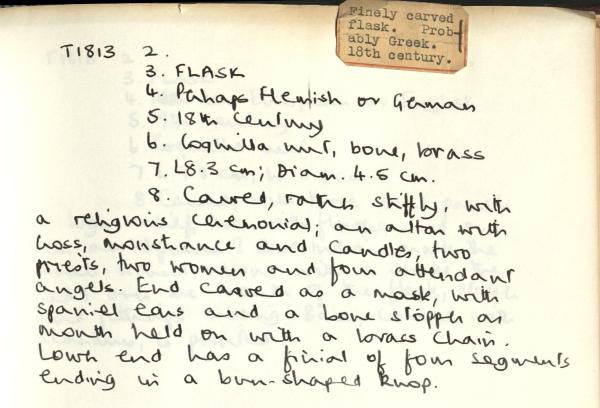 Finely carved
flask. Prob-
ably Greek.
18th century.
T1813 2.
3. FLASK
4. Perhaps Flemish or German
5. 18th Century
6. Coquilla nut, bone, brass
7. L8.3 cm; Diam. 4.5 cm.
8. Carved, rather stiffly, with
a religious ceremonial; an altar with
cross, monstrance and candles, two
priests, two women and four attendant
angels. End carved as a mask, with
spaniel ears and a bone stopper as
mouth held on with a brass chain.
Lower end has a finial of four segments
ending in a bun-shaped knop.